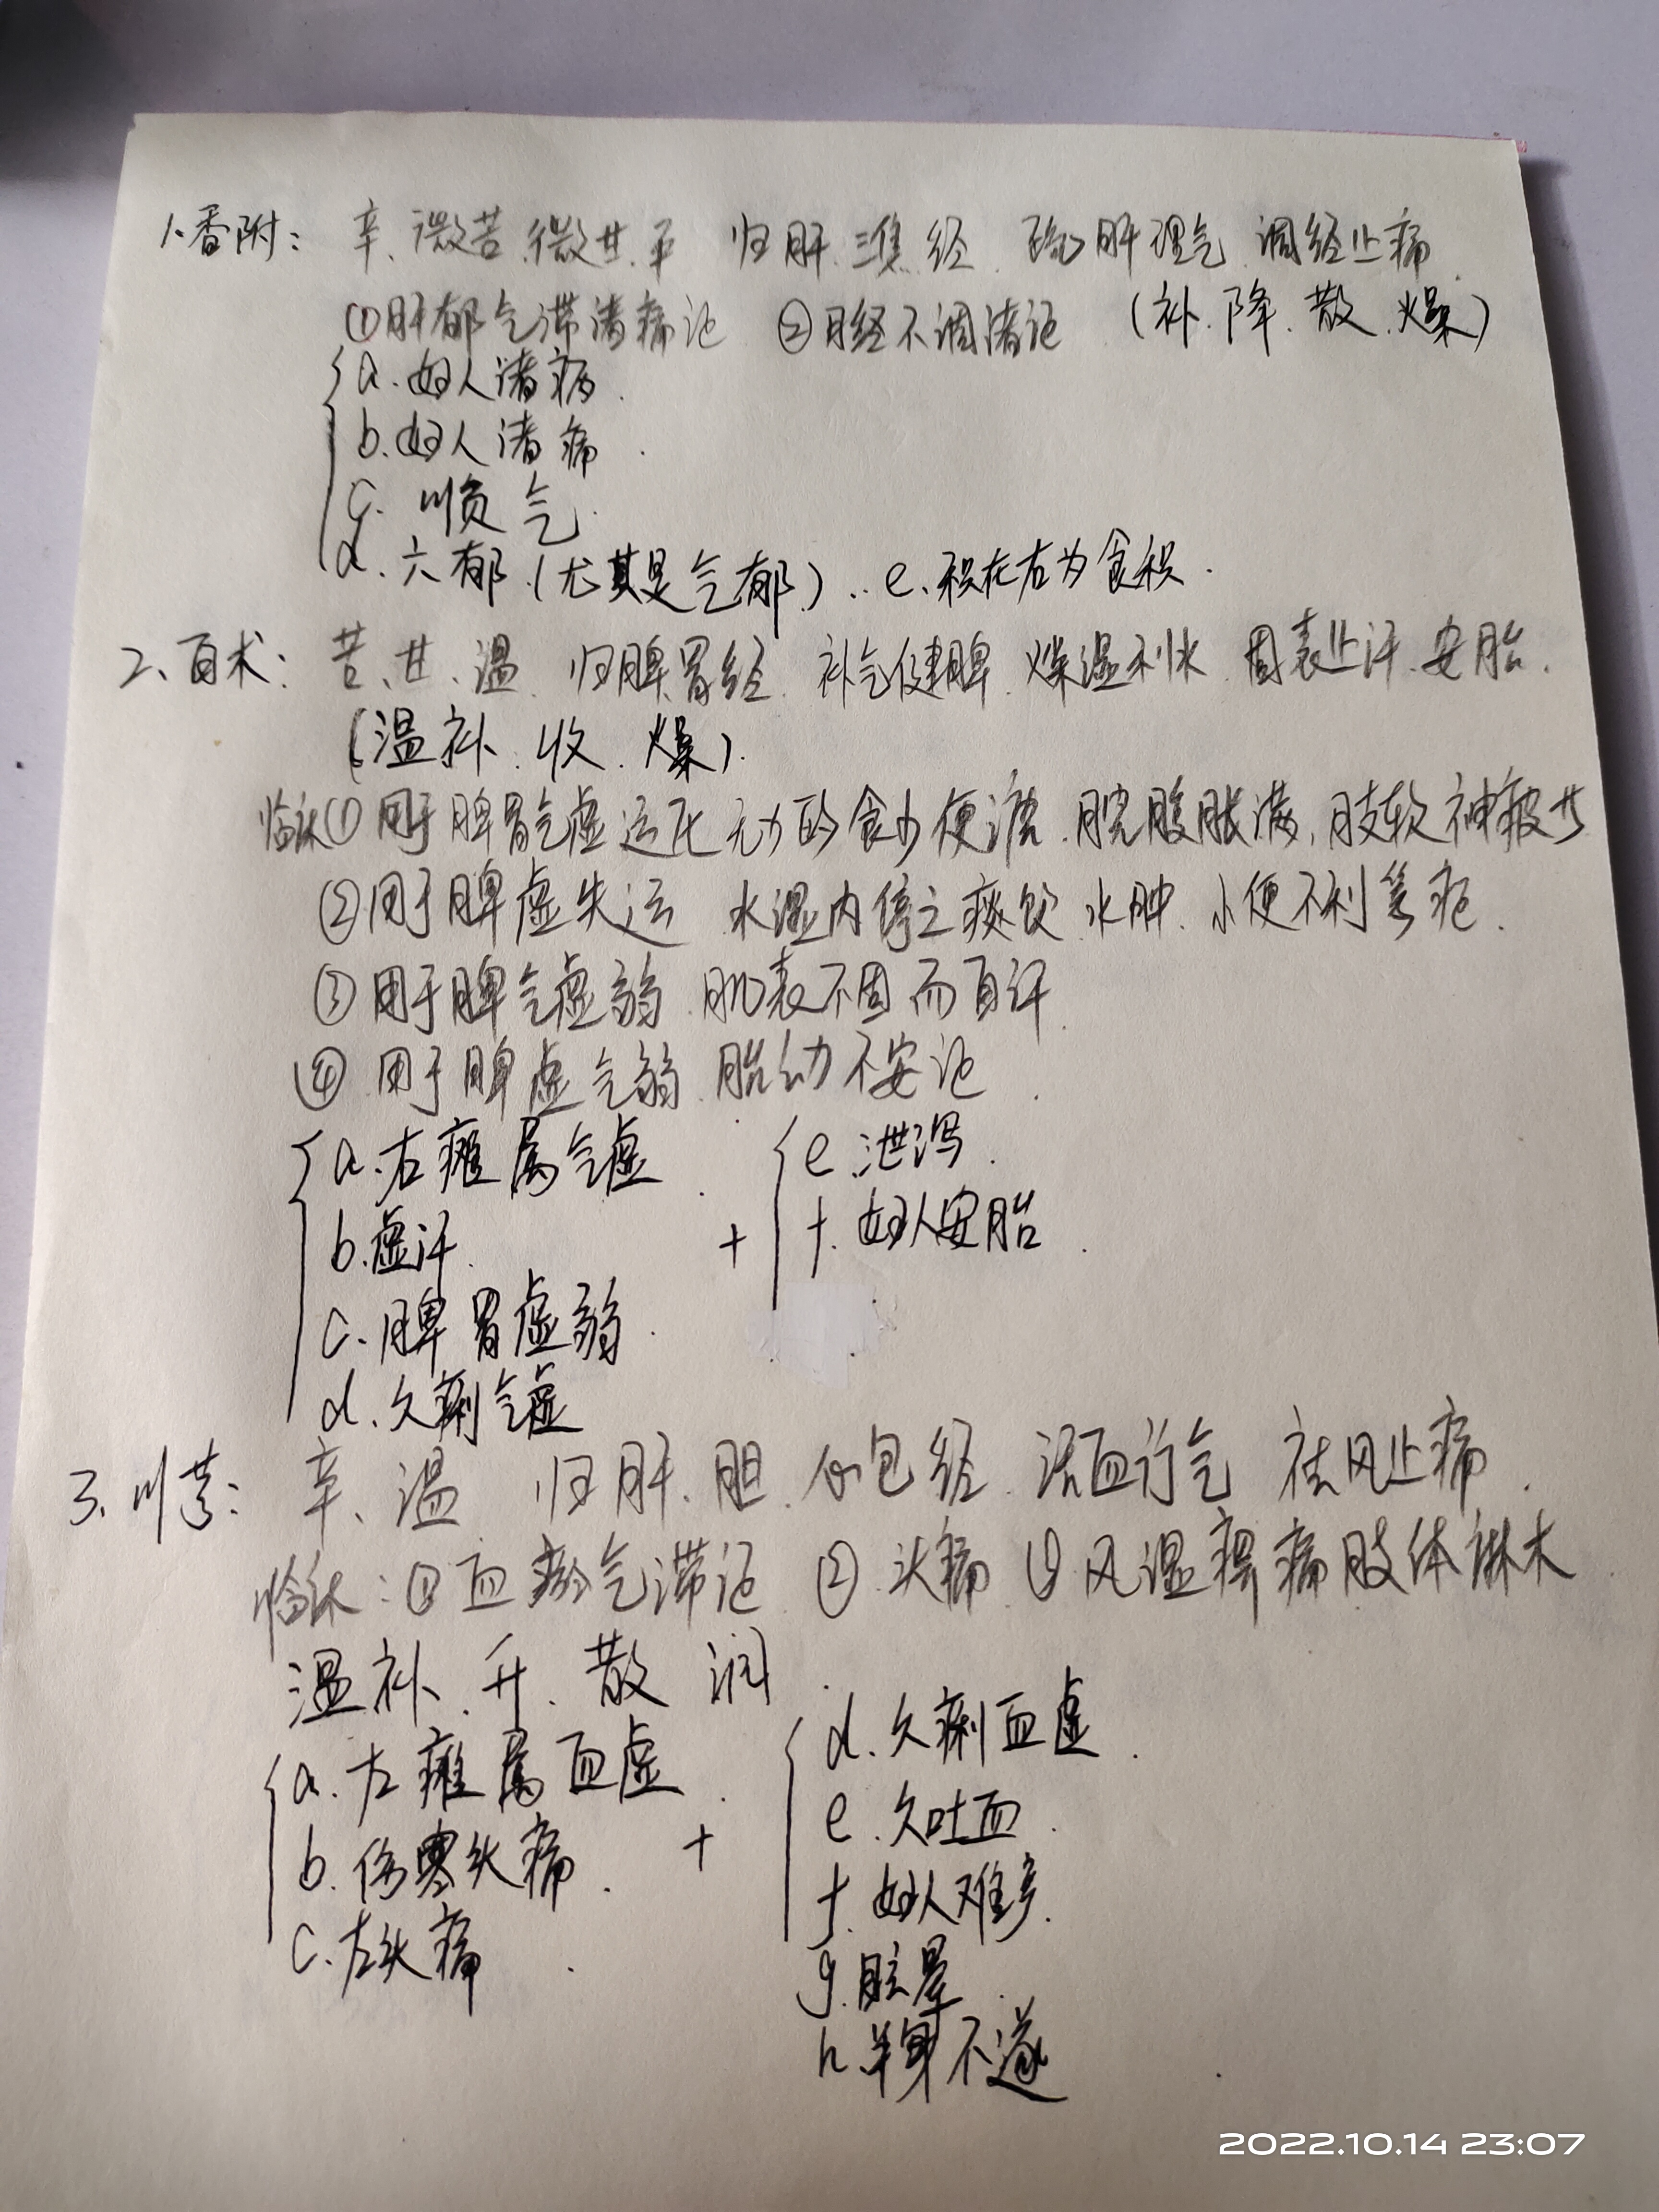 1.香附: 辛、微苦.微甘.平 归肝.三焦经. 疏肝理气.调经止痛.
①肝郁气滞诸痛证 ②月经不调诸证 (补.降.散.燥)
a.妇人诸病.
b.妇人诸痛.
c.顺气.
d.六郁.(尤其是气郁.)..e.积在右为食积.
2、白术: 苦、甘、温. 归脾.胃经. 补气健脾.燥湿利水.固表止汗.安胎.
(温补.收.燥).
临床①用于脾胃气虚运化无力的食少便溏.脘腹胀满,肢软神疲
②用于脾虚失运 水湿内停之痰饮.水肿.小便不利等症.
③用于脾气虚弱.肌表不固而自汗.
④用于脾虚气弱.胎动不安证.
a.右瘫属气虚. e.泄泻.
b.虚汗. + f.妇人安胎.
c.脾胃虚弱.
d.久痢气虚
3.川芎: 辛、温 归肝.胆.心包经.活血行气 祛风止痛.
临床:①血瘀气滞证.②头痛 ③风湿痹痛肢体麻木.
温补.升.散.润.
a.左瘫属血虚. d.久痢血虚.
b.伤寒头痛. + e.久吐血.
c.左头痛. f.妇人难产.
g.眩晕.
h.半身不遂.
2022.10.14 23:07